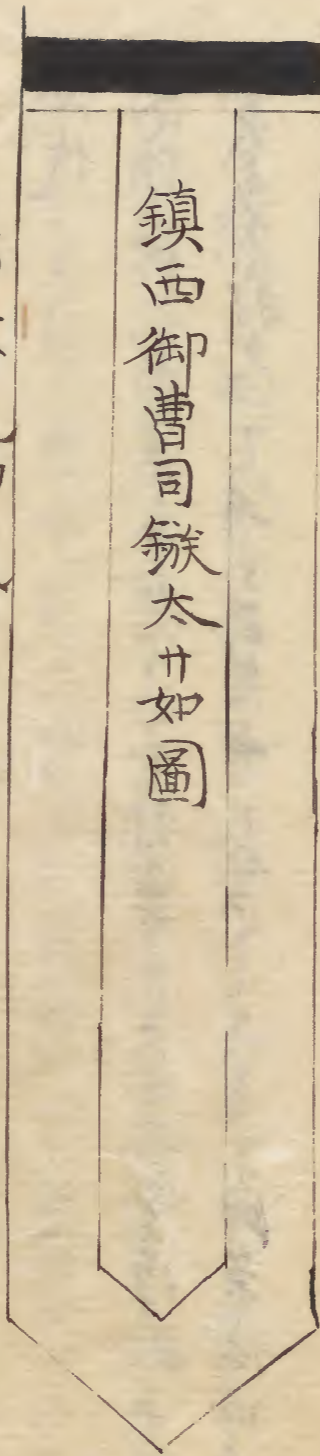 鎮西御曹司鏃太サ如圖